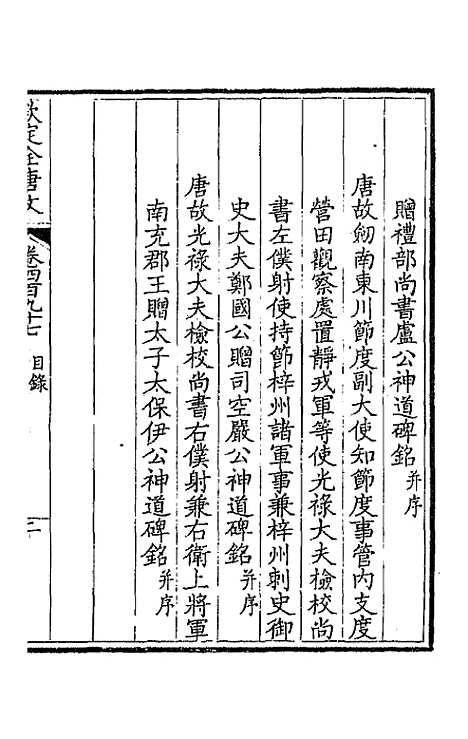 贈禮部尚書盧公神道碑銘并序
唐故劒南東川節度副大使知節度事管內支度
營田觀察處置靜戎軍等使光祿大夫檢校尚
書左僕射使持節梓州諸軍事兼梓州刺史御
史大夫鄭國公贈司空嚴公神道碑銘并序
唐故光祿大夫檢校尚書右僕射兼右衛上將軍
南充郡王贈太子太保伊公神道碑銘并序
欽定全唐文 卷四百九十七 目錄 二